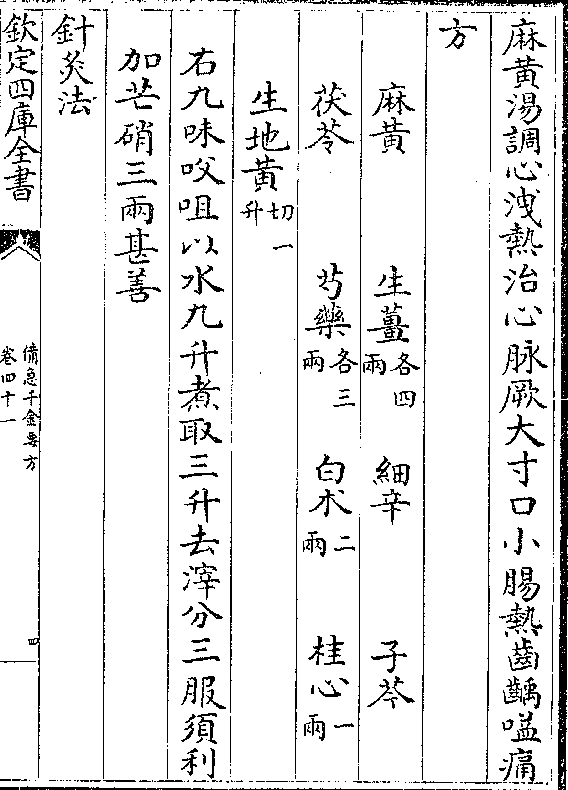 麻黄湯調心洩熱治心脉厥大寸口小腸熱齒齲嗌痛
方
麻黄　生薑各四兩　細辛　子芩
茯苓　芍藥各三兩　白术二兩　桂心一兩
生地黄切一升
右九味㕮咀以水九升煮取三升去滓分三服須利
加芒硝三兩甚善
針灸法
欽定四庫全書　備急千金要方卷四十一　四